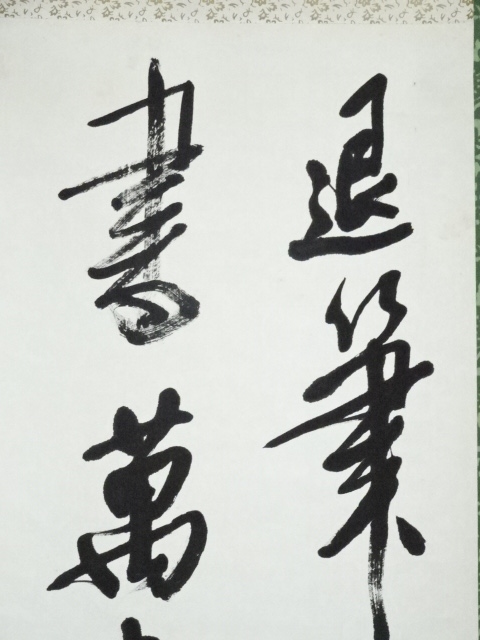 退筆
書萬